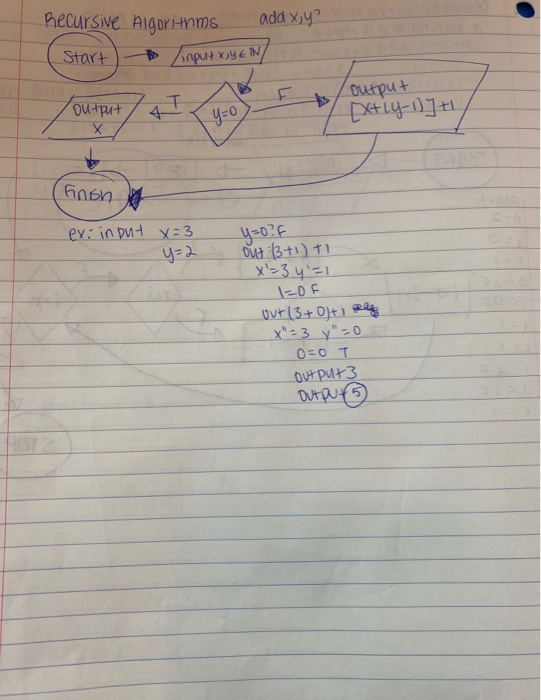 Recursive Algorithms add x,y?
Start
input x,y ∈ ℕ
output
x
T
y=0
F
output
[x+(y-1)]+1
Finish
ex: input x=3 y=0? F
y=2 out: (3+1)+1
x'=3 y'=1
1=0 F
out (3+0)+1
x"=3 y"=0
0=0 T
output 3
output 5